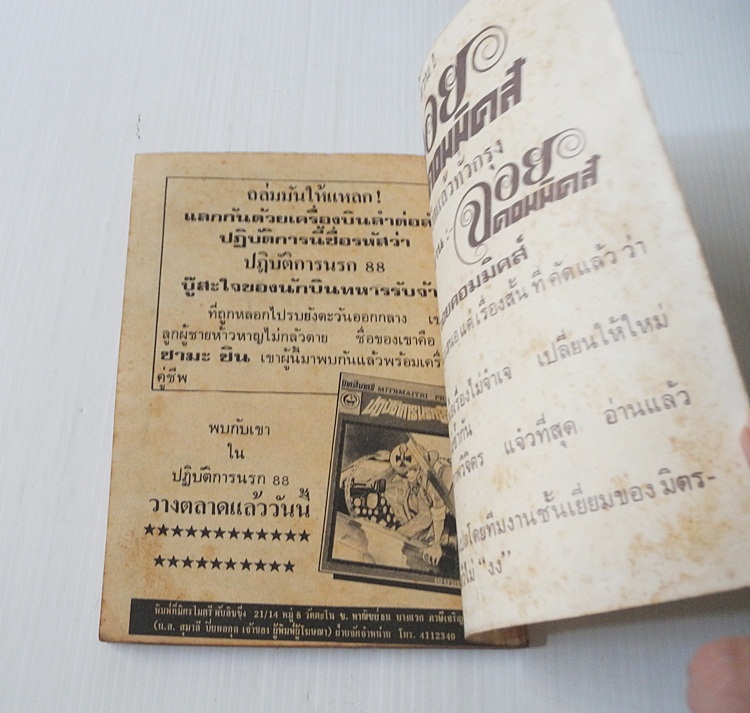 ถล่มมันให้แหลก!
แลกกันด้วยเครื่องบินลำต่อลำ
ปฏิบัติการนี้ชื่อรหัสว่า
ปฏิบัติการนรก 88
บู๊สะใจของนักบินทหารรับจ้าง
ที่ถูกหลอกไปรบยังตะวันออกกลาง
ลูกผู้ชายห้าวหาญไม่กลัวตาย ชื่อของเขาคือ
ซามะ ชิน เขาผู้นี้มาพบกันแล้วพร้อมเครื่
คู่ชีพ
พบกับเขา
ใน
ปฏิบัติการนรก 88
วางตลาดแล้ววันนี้
★★★★★★★★★★★★
★★★★★★★★★★
MITRMAITRI
ปฏิบัติการนรก
พิมพ์ที่มิตรไมตรี 21/14 หมู่ 8 บางแวก ภาษีเจริญ
โทร. 4112340
อย
คอมมิคส์
แล้วทั่วกรุง
จอย
คอมมิคส์
อยคอมมิคส์
นอแต่เรื่องสั้น ที่คัดแล้ว ว่า
เรื่องไม่จำเจ เปลี่ยนให้ใหม่
ซ้ำกัน
วิจิตร แจ๋วที่สุด อ่านแล้ว
โดยทีมงานชั้นเยี่ยมของ มิตร-
ไม่ "งง"